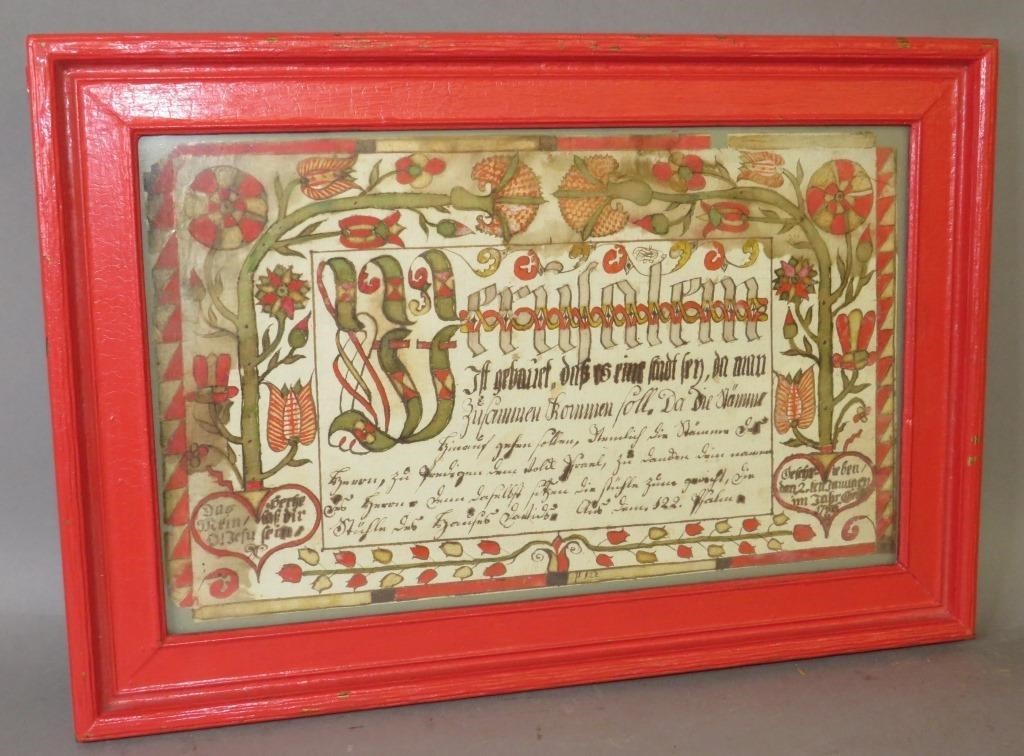 Jerusalem
Ist gebauet, daß es eine stadt sey, da man
Zusammen kommen soll. Da die Stämme
hinauf gehen sollen, Nemlich die Stämme des
Herrn, zu Predigen dem Volck Israel, zu dancken dem namen
des Herrn. Denn daselbst sitzen die stühle zum gericht, die
Stühle des Hauses Davids. Aus dem 122. Psalm.
Das Hertze
Mein, laß dir
O! Jesu sein.
Geschr ieben
den 2. ten Januari
im Jahr